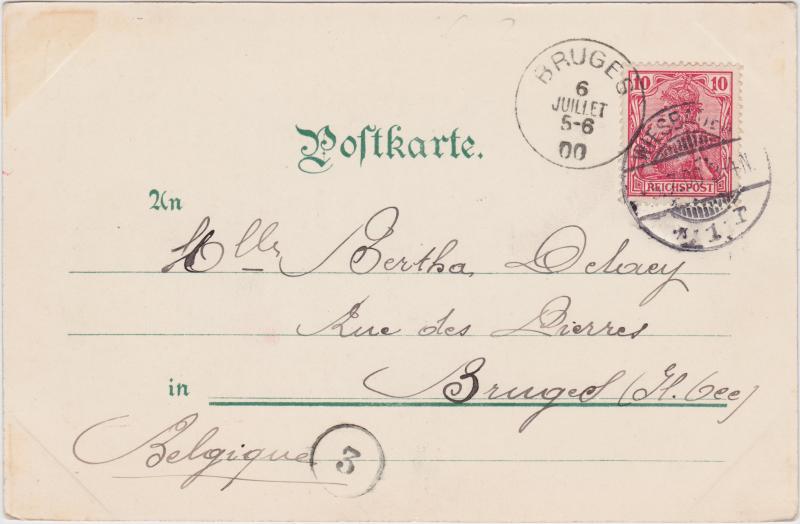 BRUGES
6
JUILLET
5-6
00
10 10
REICHSPOST
WIESBADEN
1. T
Postkarte.
An
Mlle Bertha Delaey
Rue des Pierres
in Bruges (H. Occ)
Belgique
3